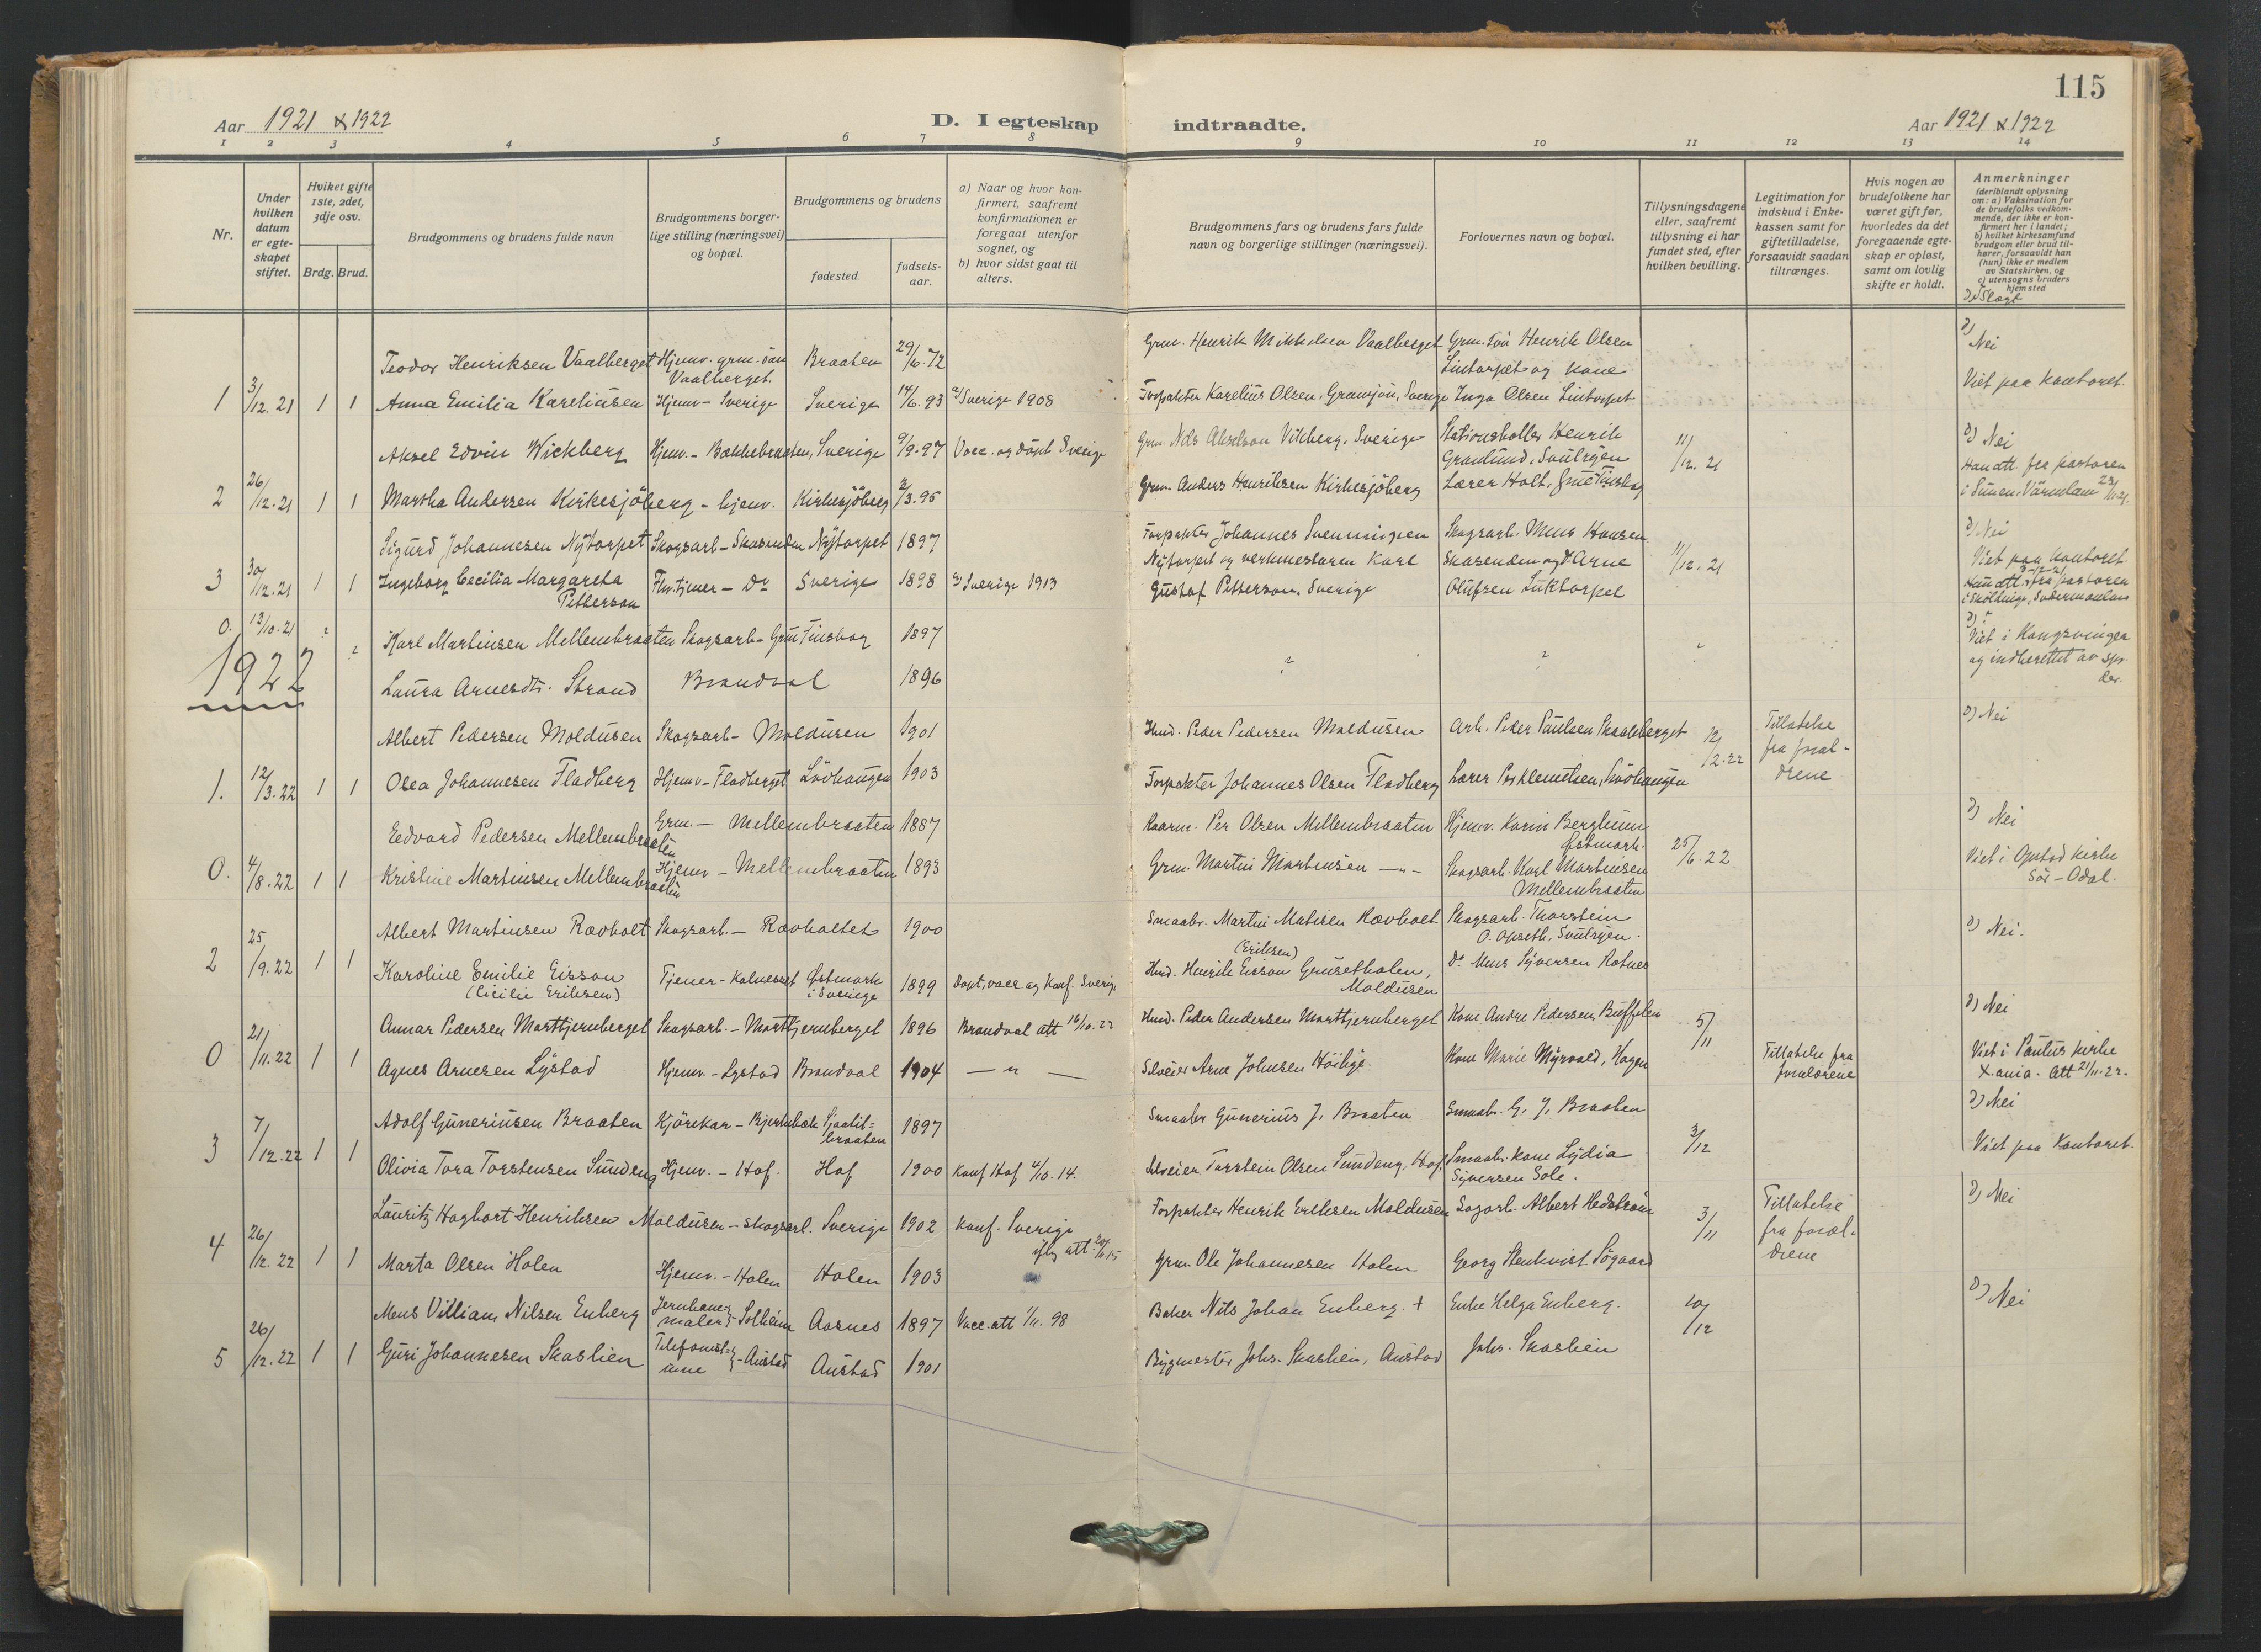 115
Aar 1921 & 1922
D. I egteskap indtraadte.
Aar 1921 & 1922
1 2 3 4 5 6 7 8 9 10 11 12 13 14
Nr.
Under hvilken datum er egteskapet stiftet.
Hviket gifte 1ste, 2det, 3dje osv.
Brdg. Brud.
Brudgommens og brudens fulde navn
Brudgommens borgerlige stilling (næringsvei) og bopæl.
Brudgommens og brudens
fødested.
fødselsaar.
a) Naar og hvor konfirmert, saafremt konfirmationen er foregaat utenfor sognet, og
b) hvor sidst gaat til alters.
Brudgommens fars og brudens fars fulde navn og borgerlige stillinger (næringsvei).
Forlovernes navn og bopæl.
Tillysningsdagene eller, saafremt tillysning ei har fundet sted, efter hvilken bevilling.
Legitimation for indskud i Enkekassen samt for giftetilladelse, forsaavidt saadan tiltrænges.
Hvis nogen av brudefolkene har været gift før, hvorledes da det foregaaende egteskap er opløst, samt om lovlig skifte er holdt.
Anmerkninger (deriblandt oplysning om: a) Vaksination for de brudefolks vedkommende, der ikke er konfirmert her i landet; b) hvilket kirkesamfund brudgom eller brud tilhører, forsaavidt han (hun) ikke er medlem av Statskirken, og c) utensogns bruders hjemsted
d) Slegt
Teodor Henriksen Vaalberget Hjemv. grm. søn Vaalberget. Braaten 29/6.72 Grm. Henrik Mikkelsen Vaalberget Grm. Henrik Olsen Lintorpet og kone d) Nei
1 3/12.21 1 1 Anna Emilia Kareliusen Hjemv- Sverige Sverige 14/6.93 a) Sverige 1908 Forpakter Karelius Olsen, Sverige Inga Olsen Lintorpet Viet paa kontoret.
Aksel Edvin Wickberg Hjemv.- Bækkebraaten, Sverige 9/9.97 Vacc. og døpt Sverige Grm. Nils Akselson Vikberg, Sverige Stationsholder Henrik Granlund, Svulryen 11/12.21 d) Nei
2 26/12.21 1 1 Martha Andersen Kirkesjöberg - hjemv. Kirkesjöberg 2/3.95 Grm. Anders Henriksen Kirkesjöberg Lærer Holt, Grue Finskog Han att. fra pastoren
Sigurd Johannesen Nytorpet Skogsarb - Skasenden Nytorpet 1897 Forpakter Johannes Svenningsen Skogsarb. Mens Hansen d) Nei
3 30/12.21 1 1 Ingeborg Cecilia Margareta Petterson Sverige 1898 a) Sverige 1913 Nytorpet og verkmesteren Karl Gustaf Petterson, Sverige Skasenden og Arne Olufsen Luktorpet 11/12.21 Viet paa kontoret.
0. 13/10.21 ? ? Karl Martinsen Mellembraaten Skogsarb- Grue Finskog 1897 ? ? ? Viet i Kongsvinger og indberettet av
1922
Laura Arnesdtr. Strand Brandval 1896
Albert Pedersen Moldusen Skogsarb- Moldusen 1901 Husd. Peder Pedersen Moldusen Arb. Peder Paulsen 12/2.22 Tillatelse fra forældrene d) Nei
1. 12/3.22 1 1 Olea Johannesen Fladberg Hjemv- Fladberget Lövhaugen 1903 Forpakter Johannes Olsen Fladberg Lærer Klemetsen, Lövhaugen
Edvard Pedersen Mellembraaten Grm. - Mellembraaten 1887 Kaarm. Per Olsen Mellembraaten Hjemv. Karin Berglien Østmark. 25/6.22 d) Nei
0. 4/8.22 1 1 Kristine Martinsen Mellembraaten Hjemv - Mellembraaten 1893 Grm. Martin Martinsen -"- Skogsarb. Karl Martinsen Mellembraaten Viet i Opstad kirke Sör-Odal.
Albert Martinsen Ravholt Skogsarb. - Ravholtet 1900 Smaabr. Martin Matisen Ravholt Skogsarb. Thorstein O. Opseth, Svulryen. d) Nei.
2 25/9.22 1 1 Karoline Emilie Eisson (Cicilie Eriksen) Tjener - Kalneset Østmark i Sverige 1899 Døpt, vacc. og Konf. Sverige Husd. Henrik Eisson (Eriksen) Moldusen Do Mens Syversen Rotnes
Annar Pedersen Morttjernberget Skogsarb. - Morttjernberget 1896 Brandval att 16/10.22 Husd. Peder Andersen Morttjernberget Kone Andre Pedersen Buffelen 5/11 d) Nei
0 21/11.22 1 1 Agnes Arnesen Lystad Hjemv. - Lystad Brandval 1904 - " - Selveier Arne Johnsen Kone Marie Myrvold, Hagen Tillatelse fra forældrene Viet i Paulus kirke X.ania. Att 21/11.22.
Adolf Guneriusen Braaten Kjörekar - Bjernbæk 1897 Smaabr Gunerius J. Braaten Smaabr. G. J. Braaten 3/12 d) Nei
3 7/12.22 1 1 Olivia Tora Torstensen Sundeng Hjemv. - Hof. Hof 1900 Konf Hof 4/10.14. Selveier Torstein Olsen Sundeng, Hof. Smaabr. kone Lydia Syversen Sole. Viet paa Kontoret.
Lauritz Hagbart Henriksen Moldusen - skogsarb. Sverige 1902 Konf. Sverige iflg att. Forpakter Henrik Eriksen Moldusen Sagarb. Albert Hedström 3/11 Tillatelse fra forældrene d) Nei
4 26/12.22 1 1 Marta Olsen Holen Hjemv. - Holen Holen 1903 Grm. Ole Johannesen Holen Georg Stenkvist Sögaard
Mens Villiam Nilsen Enberg Jernbanemaler - Solheim Aasnes 1897 Vacc. att 1/11.98 Baker Nils Johan Enberg. + Enke Helga Enberg. 10/12 d) Nei
5 26/12.22 1 1 Guri Johannesen Skaslien Telefonistinne - Austad Austad 1901 Bygmester Johs. Skaslien, Austad Johs. Skaslien